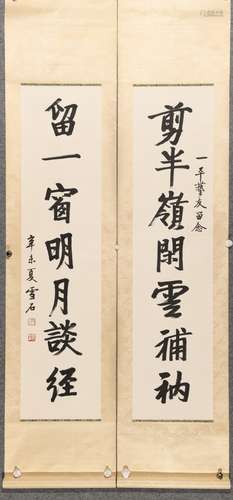 一平藝友留念
剪半嶺閑雲補衲
留一窗明月談経
辛未夏雪石